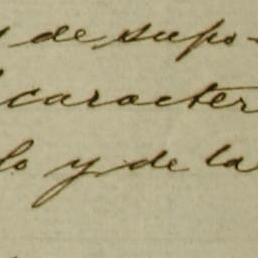 y de supo-
caracter
lo y de la